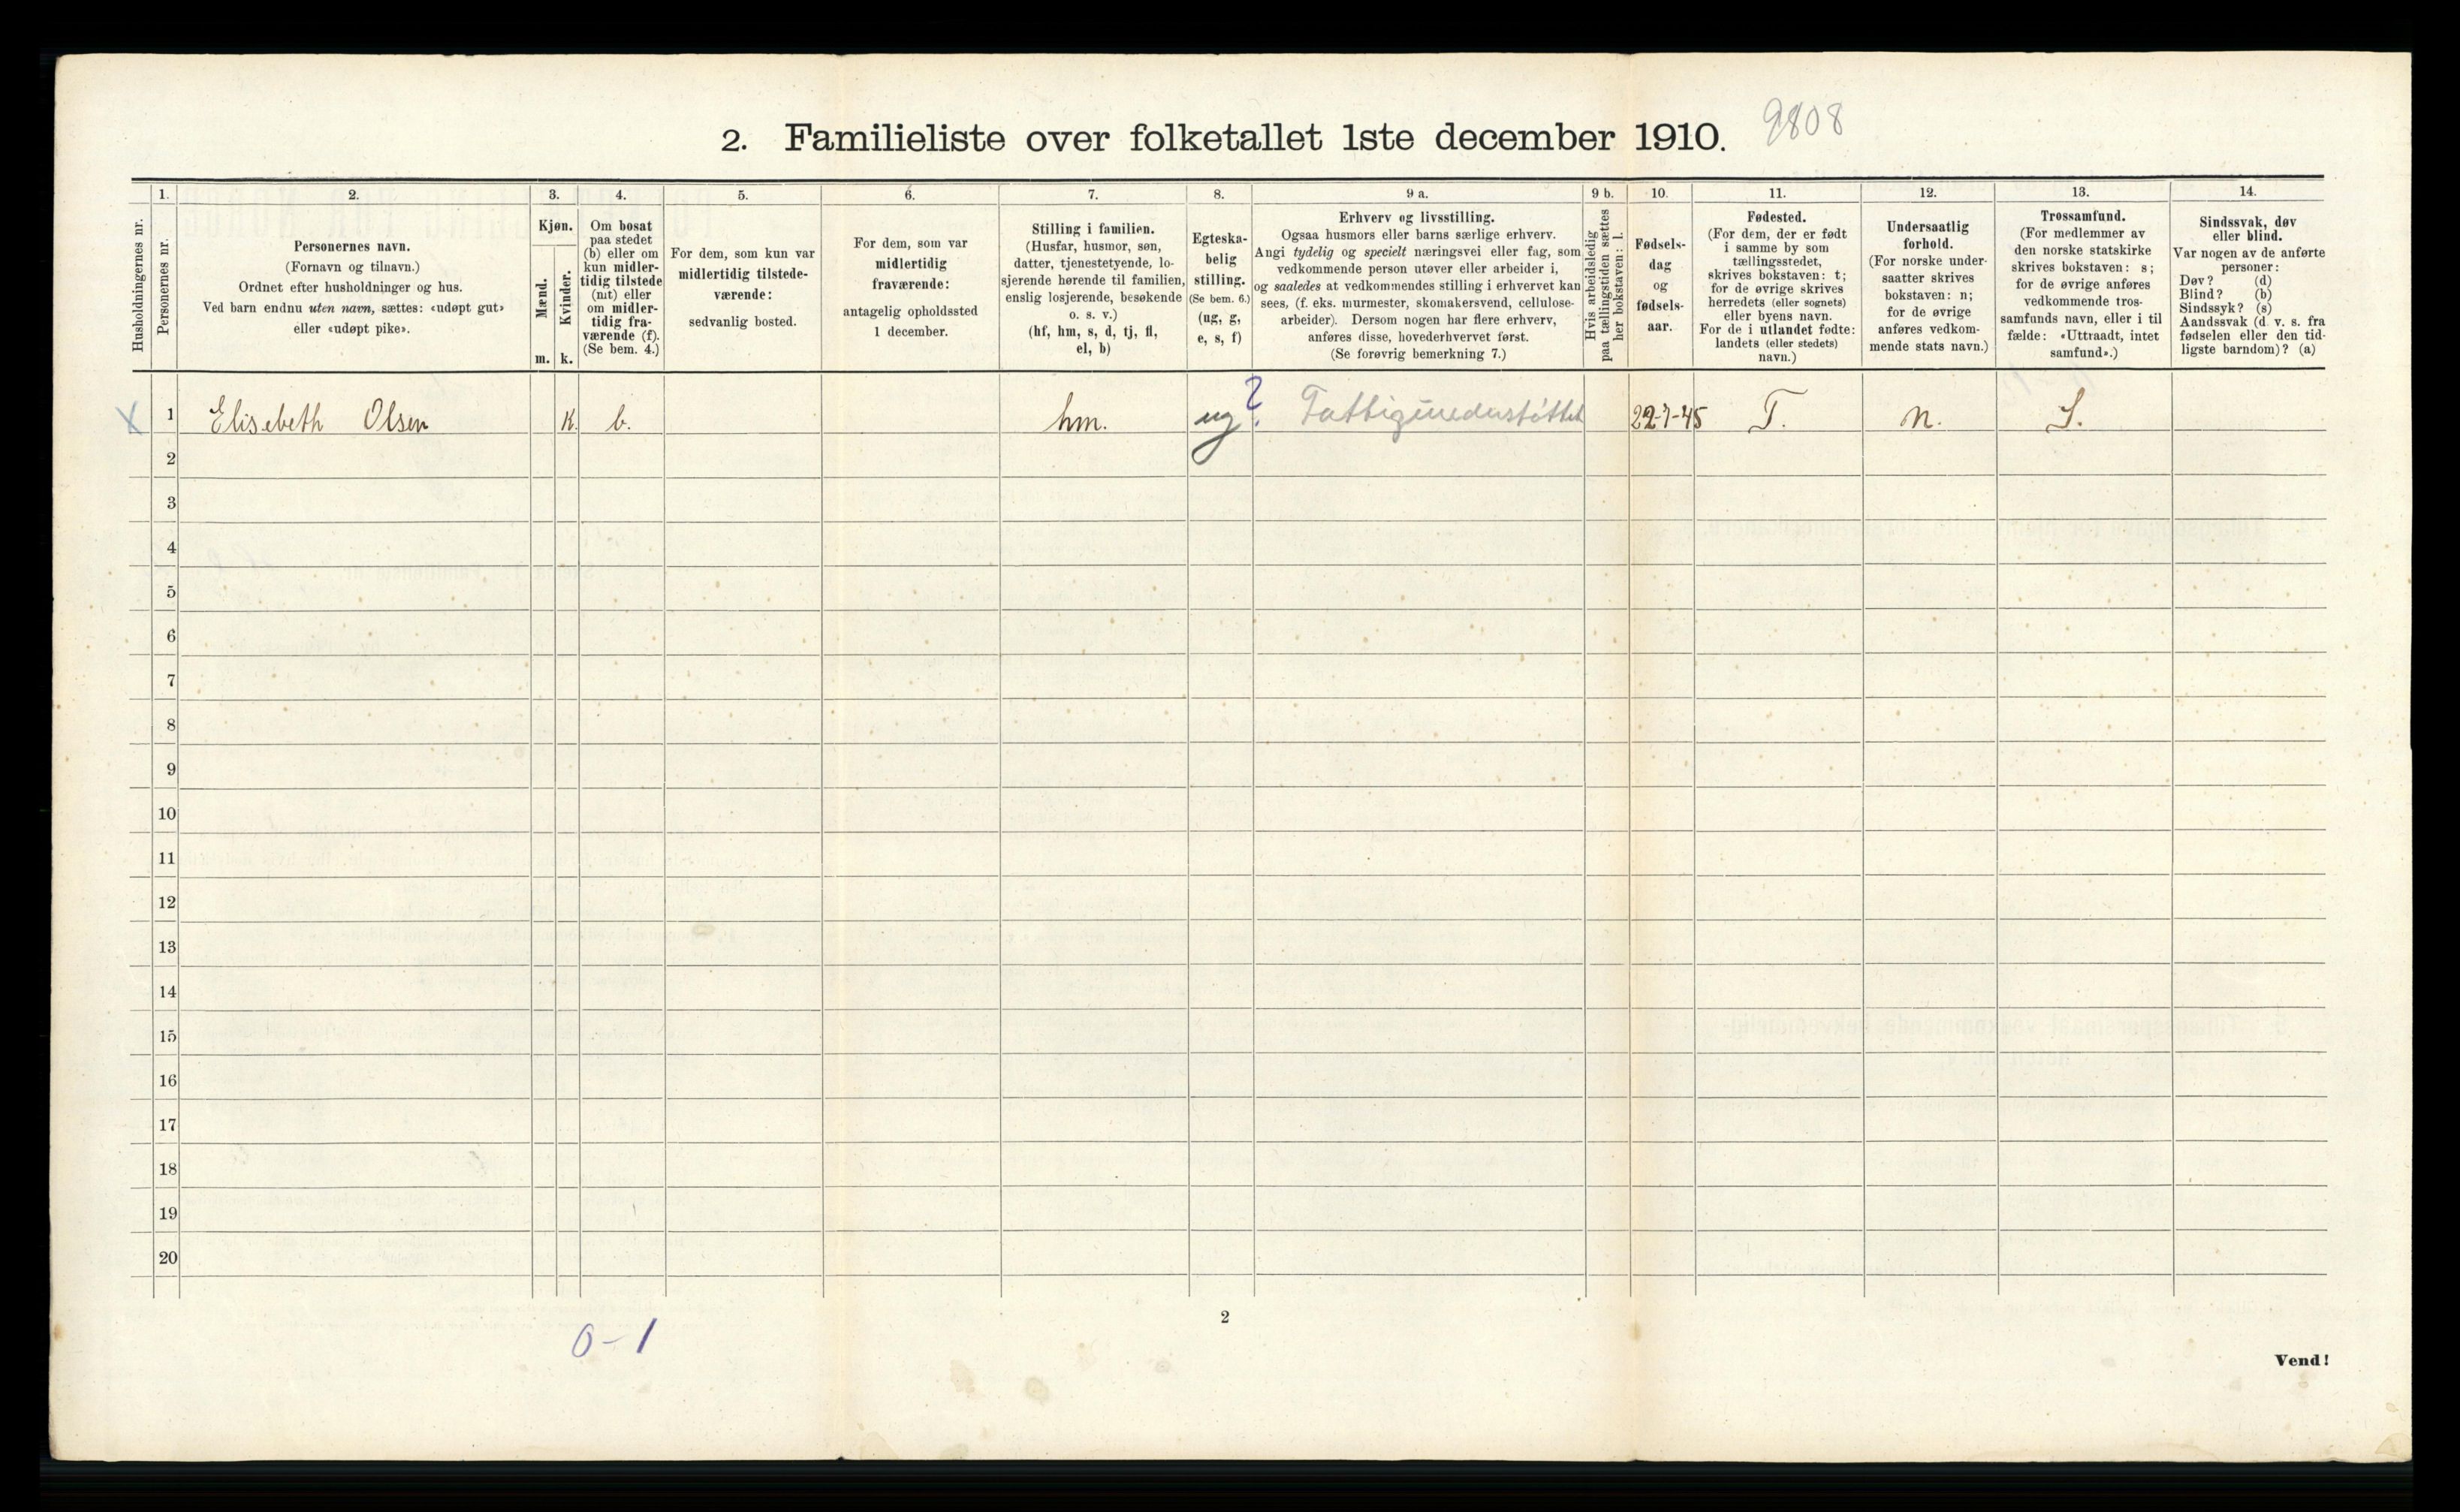 2. Familieliste over folketallet 1ste december 1910. 9808
1. 2. 3. 4. 5. 6. 7. 8. 9 a. 9 b. 10. 11. 12. 13. 14.
Husholdningernes nr.
Personernes nr.
Personernes navn.
(Fornavn og tilnavn.)
Ordnet efter husholdninger og hus.
Ved barn endnu uten navn, sættes: «udøpt gut»
eller «udøpt pike».
Kjøn.
Mænd.
Kvinder.
m. k.
Om bosat
paa stedet
(b) eller om
kun midler-
tidig tilstede
(mt) eller
om midler-
tidig fra-
værende (f).
(Se bem. 4.)
For dem, som kun var
midlertidig tilstede-
værende:
sedvanlig bosted.
For dem, som var
midlertidig
fraværende:
antagelig opholdssted
1 december.
Stilling i familien.
(Husfar, husmor, søn,
datter, tjenestetyende, lo-
sjerende hørende til familien,
enslig losjerende, besøkende
o. s. v.)
(hf, hm, s, d, tj, fl,
el, b)
Egteska-
belig
stilling.
(Se bem. 6.)
(ug, g,
e, s, f)
Erhverv og livsstilling.
Ogsaa husmors eller barns særlige erhverv.
Angi tydelig og specielt næringsvei eller fag, som
vedkommende person utøver eller arbeider i,
og saaledes at vedkommendes stilling i erhvervet kan
sees, (f. eks. murmester, skomakersvend, cellulose-
arbeider). Dersom nogen har flere erhverv,
anføres disse, hovederhvervet først.
(Se forøvrig bemerkning 7.)
Hvis arbeidsledig
paa tællingstiden sættes
her bokstaven: l.
Fødsels-
dag
og
fødsels-
aar.
Fødested.
(For dem, der er født
i samme by som
tællingsstedet,
skrives bokstaven: t;
for de øvrige skrives
herredets (eller sognets)
eller byens navn.
For de i utlandet fødte:
landets (eller stedets)
navn.)
Undersaatlig
forhold.
(For norske under-
saatter skrives
bokstaven: n;
for de øvrige
anføres vedkom-
mende stats navn.)
Trossamfund.
(For medlemmer av
den norske statskirke
skrives bokstaven: s;
for de øvrige anføres
vedkommende tros-
samfunds navn, eller i til
fælde: «Uttraadt, intet
samfund».)
Sindssvak, døv
eller blind.
Var nogen av de anførte
personer:
Døv? (d)
Blind? (b)
Sindssyk? (s)
Aandssvak (d. v. s. fra
fødselen eller den tid-
ligste barndom)? (a)
X 1 Elisebeth Olsen K. b. hm. ug. ? Fattigunderstøttet 22-7-45 T. n. S.
2
3
4
5
6
7
8
9
10
11
12
13
14
15
16
17
18
19
20
2
0-1
Vend!